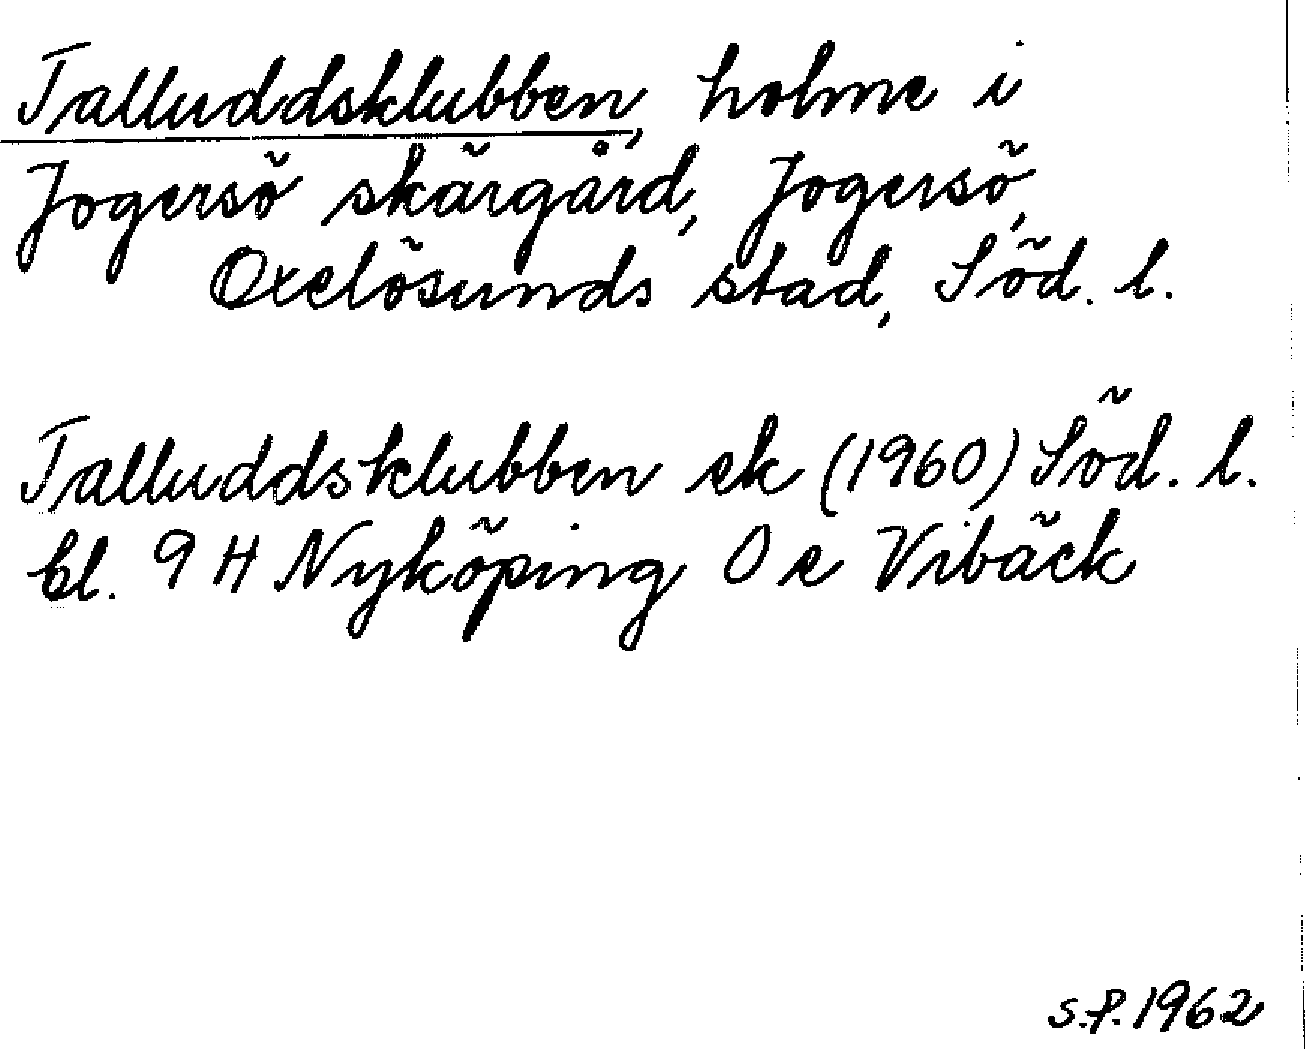 Talluddsklubben, holme i
Jogersö skärgård, Jogersö,
Oxelösunds stad, Söd. l.
Talluddsklubben ek (1960) Söd. l.
bl. 9 H Nyköping O e Vibäck
s.f. 1962